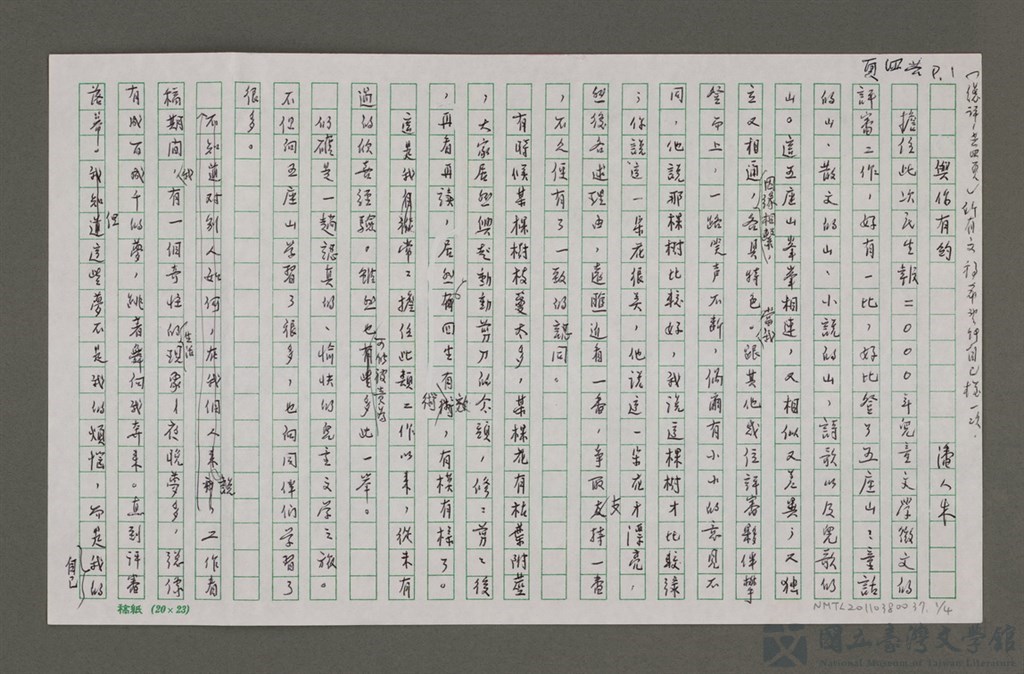 (總評,共四頁)所有文稿希望能自己校一次.
P.1
頁四共
與你有約
潘人木
擔任此次民生報二〇〇〇年兒童文學徵文的
評審工作,好有一比,好比登了五座山:童話
的山、散文的山、小說的山,詩歌以及兒歌的
山。這五座山峯峯相連,又相似又差異;又獨
立又相通,因緣相繫,各具特色。當我跟其他幾位評審夥伴攀
登而上,一路笑声不斷,偶爾有小小的意見不
同,他說那棵樹比較好,我說這棵樹才比較綠
;你說這一朵花很美,他說這一朵花才漂亮,
然後各述理由,遠瞧近看一番,爭取支持一番
,不久便有了一致的認同。
有時候某棵樹枝蔓太多,某棵花有枯葉附莖
,大家居然興起動動剪刀的念頭,修修剪剪後
,再看再讀,居然有回生有術,有模有樣了。
這是我有幸常常擔任此類工作以來,從未有
過的欣喜經驗。雖然也可能被責為多此一舉。
的確是一趟認真的、愉快的兒童文學之旅。
不但向五座山学習了很多,也向同伴们学習了
很多。
不知道对别人如何,在我個人來說,工作看
稿期間,我有一個奇怪的生活現象—夜晚夢多,總像
有成百成千的夢,跳着舞向我奔来。直到評審
落幕,但我知道這些夢不是我的煩惱,而是我的
自己
稿紙 (20×23)
NMTL20110380037. 1/4
國立臺灣文學館
National Museum of Taiwan Literature